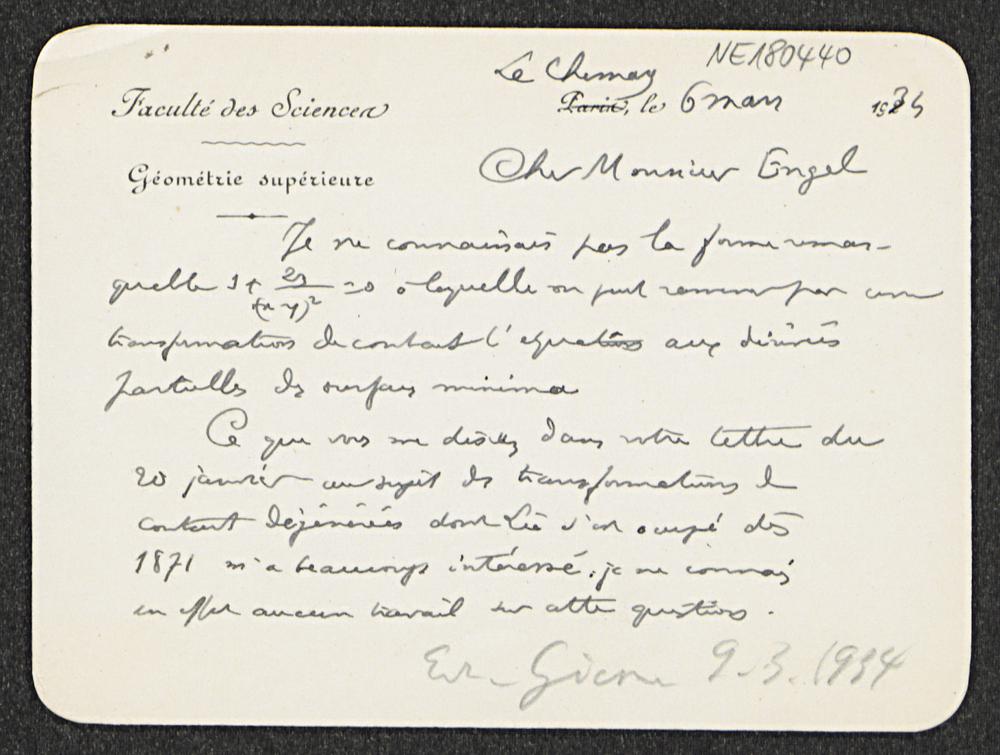 NE180440
Le Chesnay
Faculté des Sciences
Paris, le 6 mars 1934
Géométrie supérieure
Cher Monsieur Engel
Je ne connaissais pas la forme remar-
quable s + 2q/(x-y)² = 0 à laquelle on peut ramener par une
transformation de contact l'équation aux dérivées
partielles des surfaces minima
Ce que vous me disiez dans votre lettre du
20 janvier au sujet des transformations de
contact dégénérées dont Lie s'est occupé dès
1871 m'a beaucoup intéressé, je ne connais
en effet aucun travail sur cette question.
9.3.1934